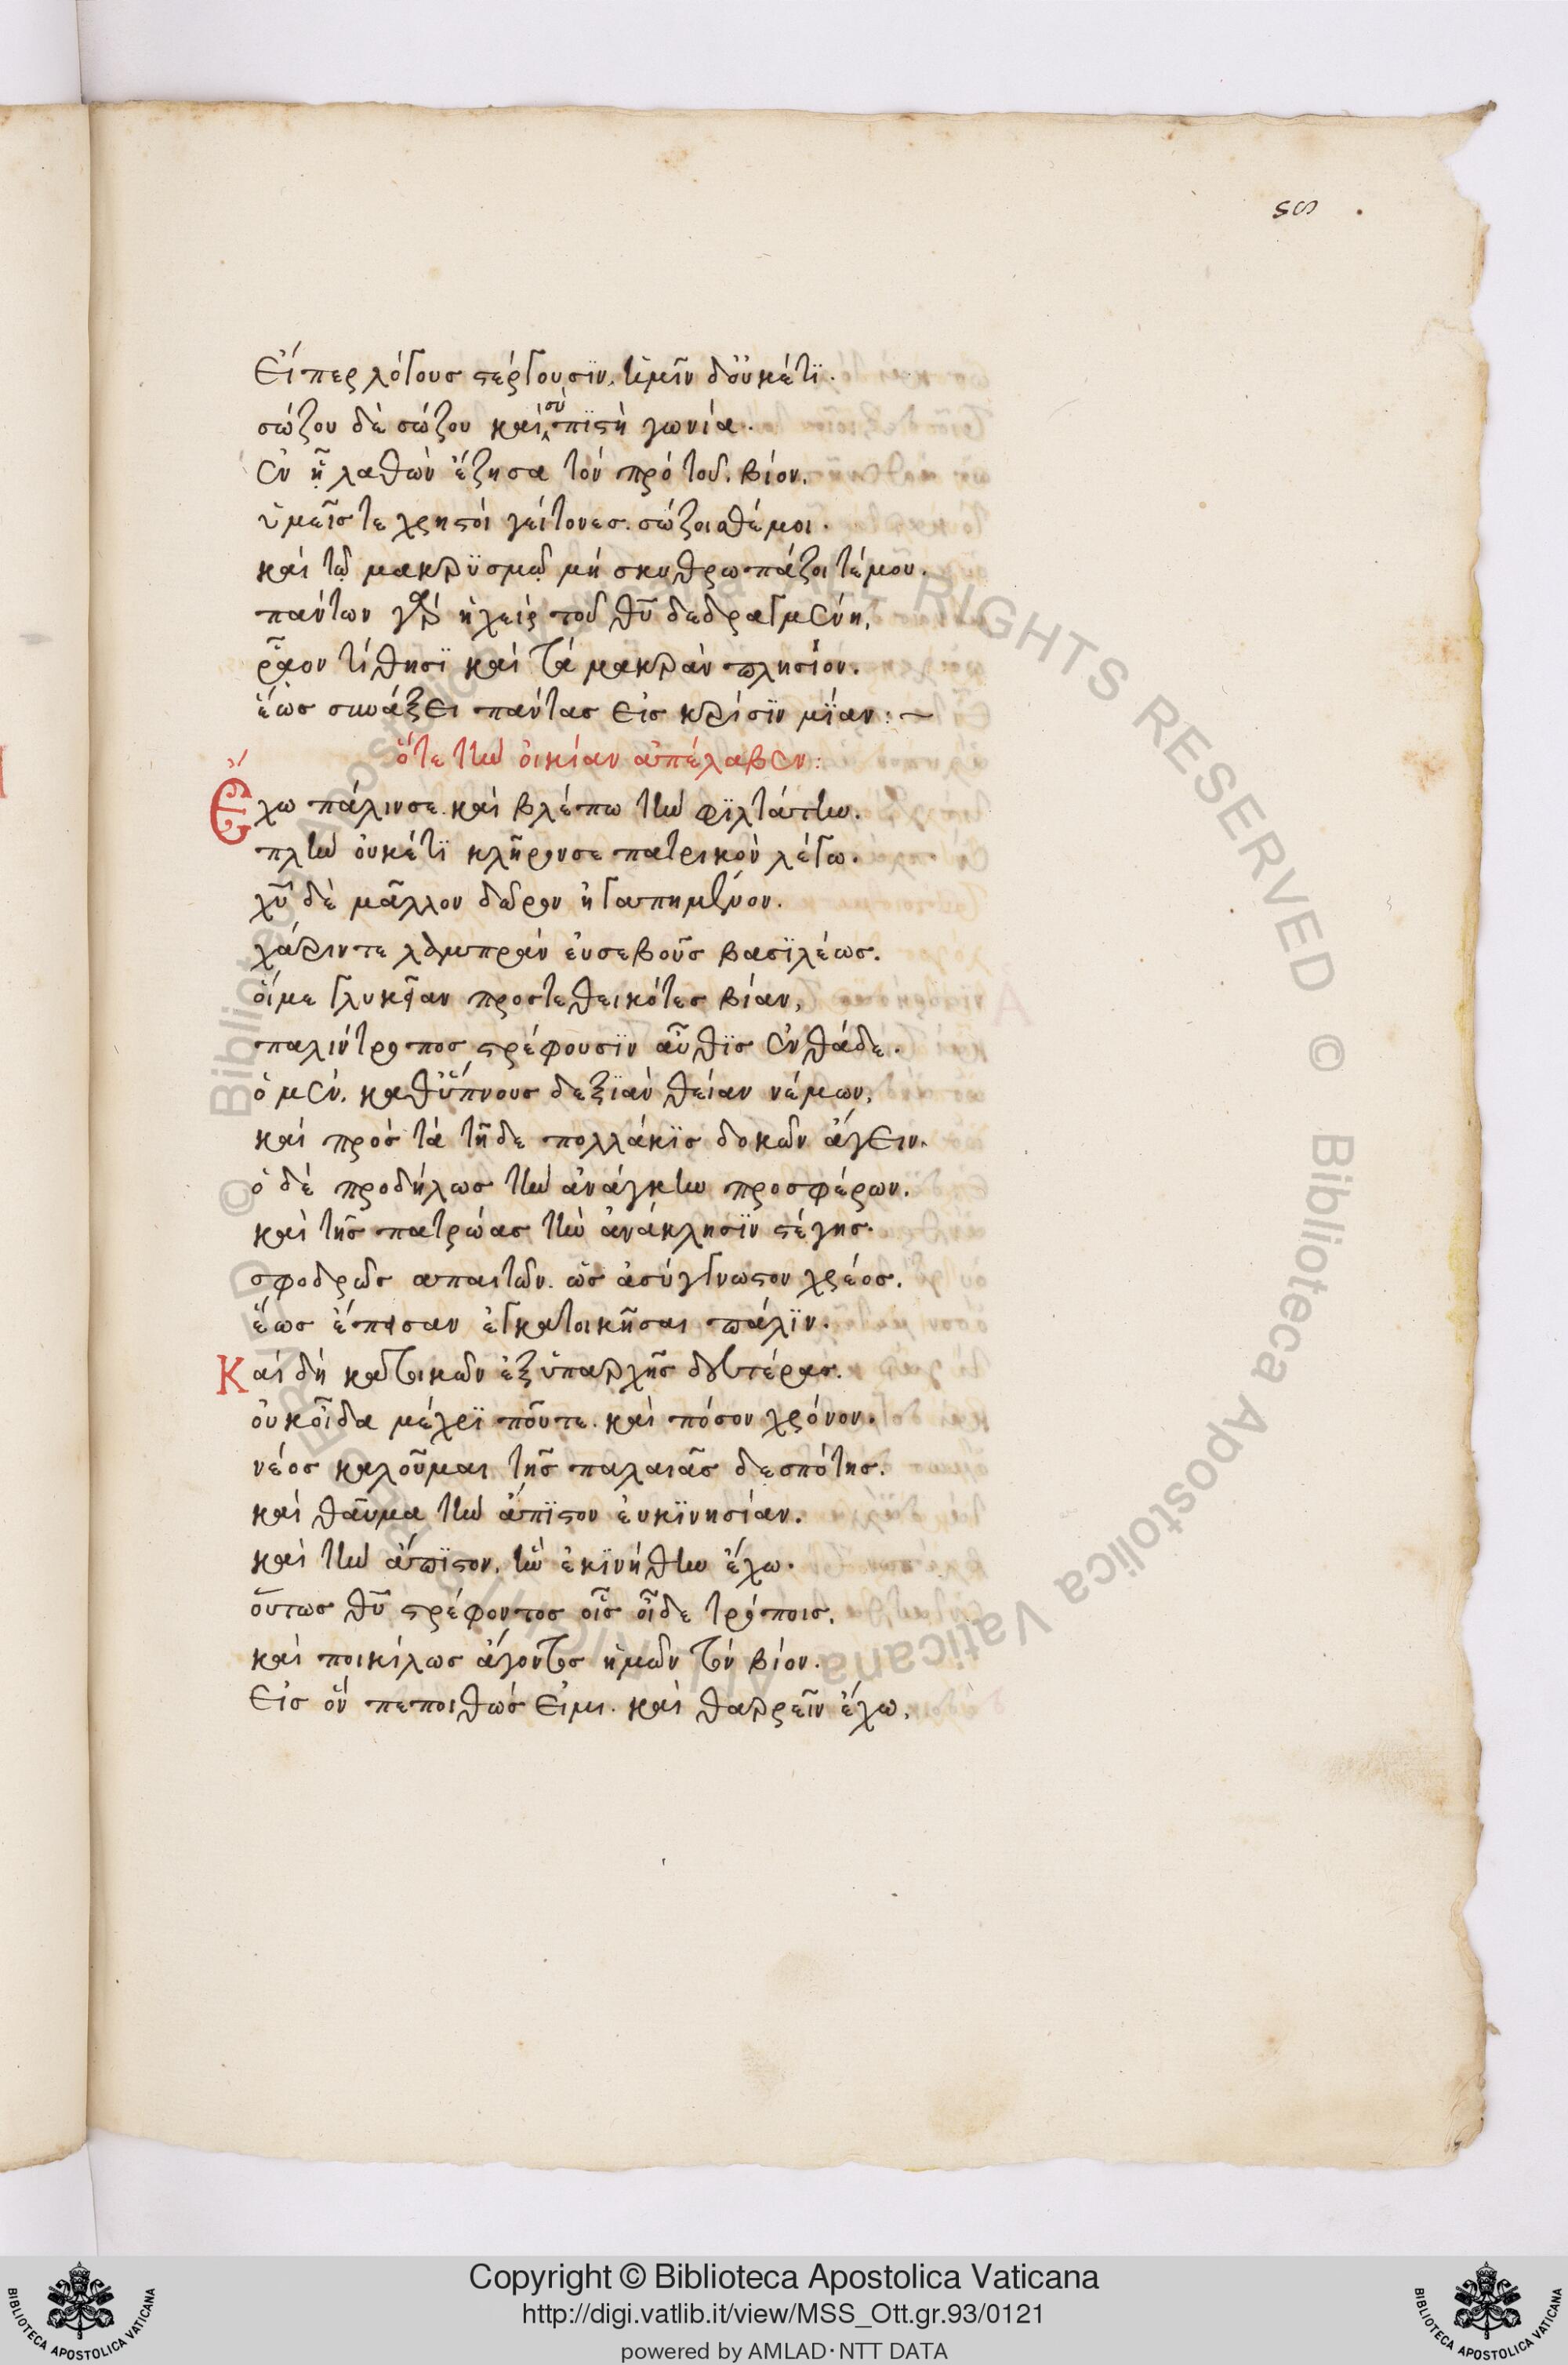 ςς .
Εἴπερ λόγους στέργουσϊν. ἡμῖν δ' οὐκέτϊ.
σώζου δὲ σώζου καὶ σὺ πϊστὴ γωνία.
ἐν ᾗ λαθὼν ἔζησα τὸν πρὸ τοῦ. βίον.
ὑμεῖς τε χρηστοὶ γείτονες. σώζοισθέ μοι.
καὶ τῷ μακρϋσμῷ μὴ σκυθρωπάζοιτέ μου.
πάντων γὰρ ἡ χεὶρ τοῦ θῦ δεδραγμένη,
ρᾷον τίθησϊ καὶ τὰ μακρὰν πλησίον.
ἕως συνάξει πάντας εἰς κρίσϊν μΐαν : ~
ὅτε τὴν οἰκίαν ἀπέλαβεν :
Ἔχω πάλιν σε. καὶ βλέπω τὴν φϊλτάτην.
πλὴν οὐκέτϊ κλῆρον σε πατρικὸν λέγω.
χῦ δὲ μᾶλλον δῶρον ἠγαπημένον.
χάριν τε λαμπρὰν εὐσεβοῦς βασϊλέως.
οἵ με γλυκεῖαν προστεθεικότες βίαν,
παλίντροπος στρέφουσϊν αὖθϊς ἐνθάδε.
ὁ μὲν. καθ' ὕπνους δεξϊὰν θείαν νέμων,
καὶ πρὸς τὰ τῇδε πολλάκϊς δοκῶν ἄγειν.
ὁ δὲ προδήλως τὴν ἀνάγκην προσφέρων.
καὶ τῆς πατρώας τὴν ἀνάκλησϊν στέγης.
σφοδρῶς ἀπαιτῶν. ὡς ἀσύγγνωστον χρέος.
ἕως ἔπεισαν ἐγκατοικῆσαι πάλϊν.
Καὶ δὴ κατοικῶν ἐξ ὑπαρχῆς δευτέρας.
οὐκ οἶδα μέχρϊ ποῦ τε. καὶ πόσον χρόνον.
νέος καλοῦμαι τῆς παλαιᾶς δεσπότης.
καὶ θαῦμα τὴν ἄπϊστον εὐκϊνησίαν.
καὶ τὴν ἄπϊστον, ἣν ἐκϊνήθην ἔχω.
οὕτως θῦ στρέφοντος οἷς οἶδε τρόποις.
καὶ ποικίλως ἄγοντος ἡμῶν τὸν βίον.
Εἰς ὃν πεποιθώς εἰμι. καὶ θαρρεῖν ἔχω,
© Biblioteca Apostolica Vaticana ALL RIGHTS RESERVED © Biblioteca Apostolica Vaticana ALL RIGHTS RESERVED
Copyright © Biblioteca Apostolica Vaticana
http://digi.vatlib.it/view/MSS_Ott.gr.93/0121
powered by AMLAD·NTT DATA
BIBLIOTECA APOSTOLICA VATICANA
BIBLIOTECA APOSTOLICA VATICANA